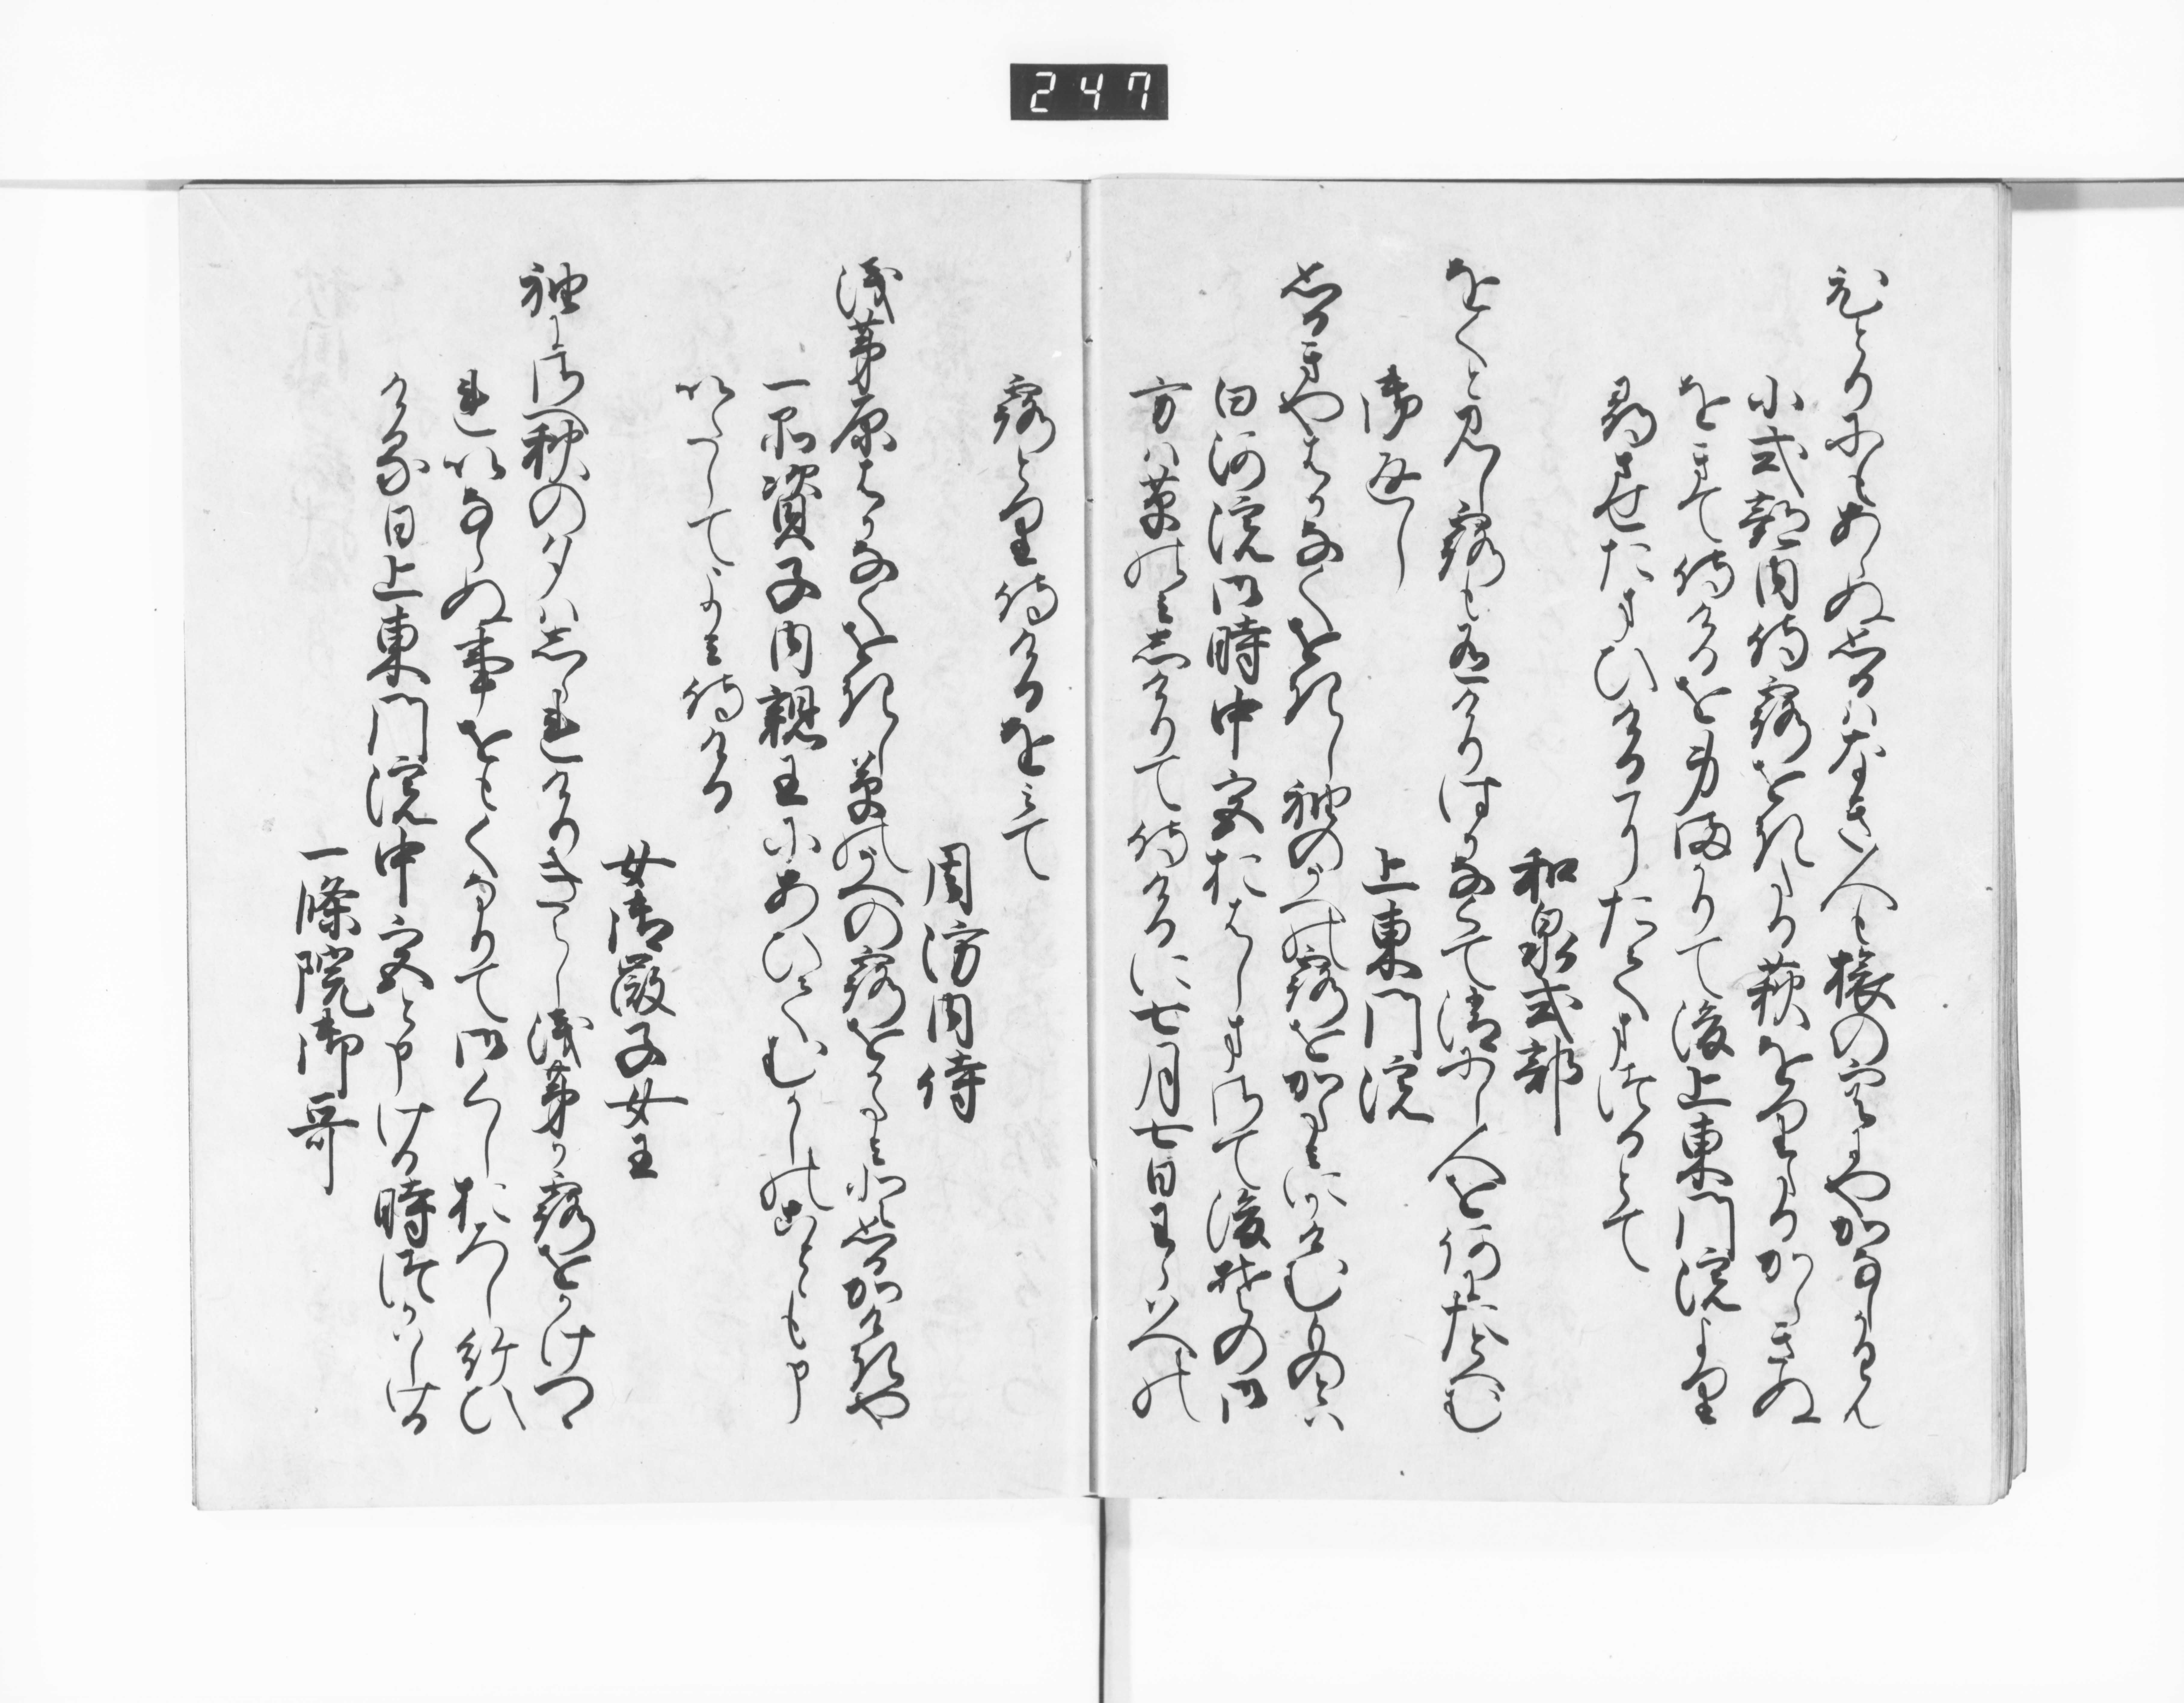 247
ひとりにもあらぬ思ひはなき人も旅の空にやかなしかるらん
小式部内侍露をきたる萩をりたるからきぬ
をきて侍けるを身まかりて後上東門院より
尋させたまひけるにたてまつるとて
和泉式部
をくと見し露も有けりはかなくて消にし人を何にたとへむ
御返し
上東門院
思きやはかなくをきし袖のうへの露をかたみにかけむものとは
白河院御時中宮おはしまさて後その御
方は草のみしけりて侍けるに七月七日わらはへの
露とり侍けるをみて
周防内侍
浅茅原はかなくをきし草のうへの露をかたみと思かけきや
一品資子内親王にあひてむかしのことゝも申
いたしてよみ侍ける
女御徽子女王
袖にさへ秋の夕はしられけりきえし浅茅か露をかけつゝ
れいならぬ事をもくなりて御くしおろし給ひ
ける日上東門院中宮と申ける時つかはしける
一條院御哥